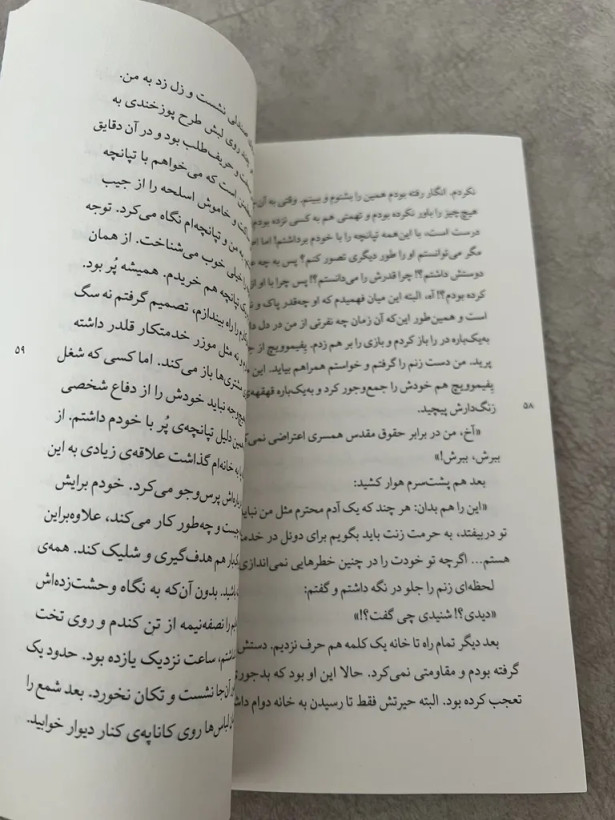 نکردم. انگار رفته بودم همین را بشنوم و ببینم. وقتی به آن
هیچ‌چیز را باور نکرده بودم و تهمتی هم به کسی نزده بودم
درست است، با این‌همه تپانچه را با خودم برداشتم! اما
مگر می‌توانستم او را طور دیگری تصور کنم؟ پس به چه
دوستش داشتم؟! چرا قدرش را می‌دانستم؟! پس چرا با او از
کرده بودم؟! آه، البته این میان فهمیدم که او چه‌قدر پاک و
است و همین‌طور این‌که آن زمان چه نفرتی از من در دل
به‌یک‌باره در را باز کردم و بازی را بر هم زدم. یفیموویچ از
پرید. من دست زنم را گرفتم و خواستم همراهم بیاید.
یفیموویچ هم خودش را جمع‌وجور کرد و به‌یک‌باره قهقهه‌ی
زنگ‌دارش پیچید.
«آخ، من در برابر حقوق مقدس همسری اعتراضی
ببرش، ببرش!»
بعد هم پشت‌سرم هوار کشید:
«این را هم بدان: هر چند که یک آدم محترم مثل من نباید
تو دربیفتد، به حرمت زنت باید بگویم برای دوئل در
هستم... اگرچه تو خودت را در چنین خطرهایی نمی‌اندازی
لحظه‌ای زنم را جلو در نگه داشتم و گفتم:
«دیدی؟! شنیدی چی گفت؟!»
بعد دیگر تمام راه تا خانه یک کلمه هم حرف نزدیم. دستش
گرفته بودم و مقاومتی نمی‌کرد. حالا این او بود که بدجوری
تعجب کرده بود. البته حیرتش فقط تا رسیدن به خانه دوام
۵۸
صندلی نشست و زل زد به من.
روی لبش طرح پوزخندی به
و حریف‌طلب بود و در آن دقایق
است که می‌خواهم با تپانچه
و خاموش اسلحه را از جیب
به من و تپانچه‌ام نگاه می‌کرد. توجه
خیلی خوب می‌شناخت. از همان
تپانچه هم خریدم. همیشه پُر بود.
را راه بیندازم، تصمیم گرفتم نه سگ
و نه مثل موزر خدمتکار قلدر داشته
مشتری‌ها باز می‌کند. اما کسی که شغل
نباید خودش را از دفاع شخصی
همین دلیل تپانچه‌ی پُر با خودم داشتم. از
به خانه‌ام گذاشت علاقه‌ی زیادی به این
پرس‌وجو می‌کرد. خودم برایش
چیست و چه‌طور کار می‌کند، علاوه‌براین
هم هدف‌گیری و شلیک کند. همه‌ی
باشید. بدون آن‌که به نگاه وحشت‌زده‌اش
را نصفه‌نیمه از تن کندم و روی تخت
ساعت نزدیک یازده بود. حدود یک
آن‌جا نشست و تکان نخورد. بعد شمع را
لباس‌ها روی کاناپه‌ی کنار دیوار خوابید.
۵۹